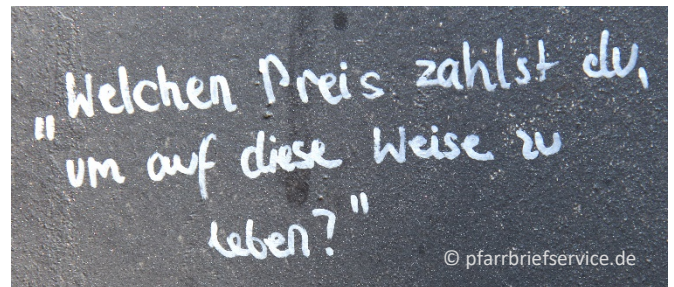 "Welchen Preis zahlst du,
um auf diese Weise zu
leben?"
© pfarrbriefservice.de